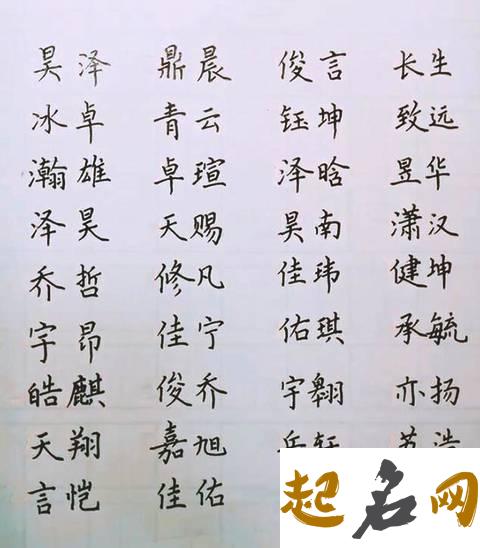 昊泽 鼎晨 俊言 长生
冰卓 青云 钰坤 致远
瀚雄 卓瑄 泽晗 昱华
泽昊 天赐 昊南 潇汉
乔哲 修凡 佳玮 健坤
宇昂 佳宁 佑琪 承毓
皓麒 俊乔 宇翱 亦扬
天翔 嘉旭
言恺 佳佑
起名网